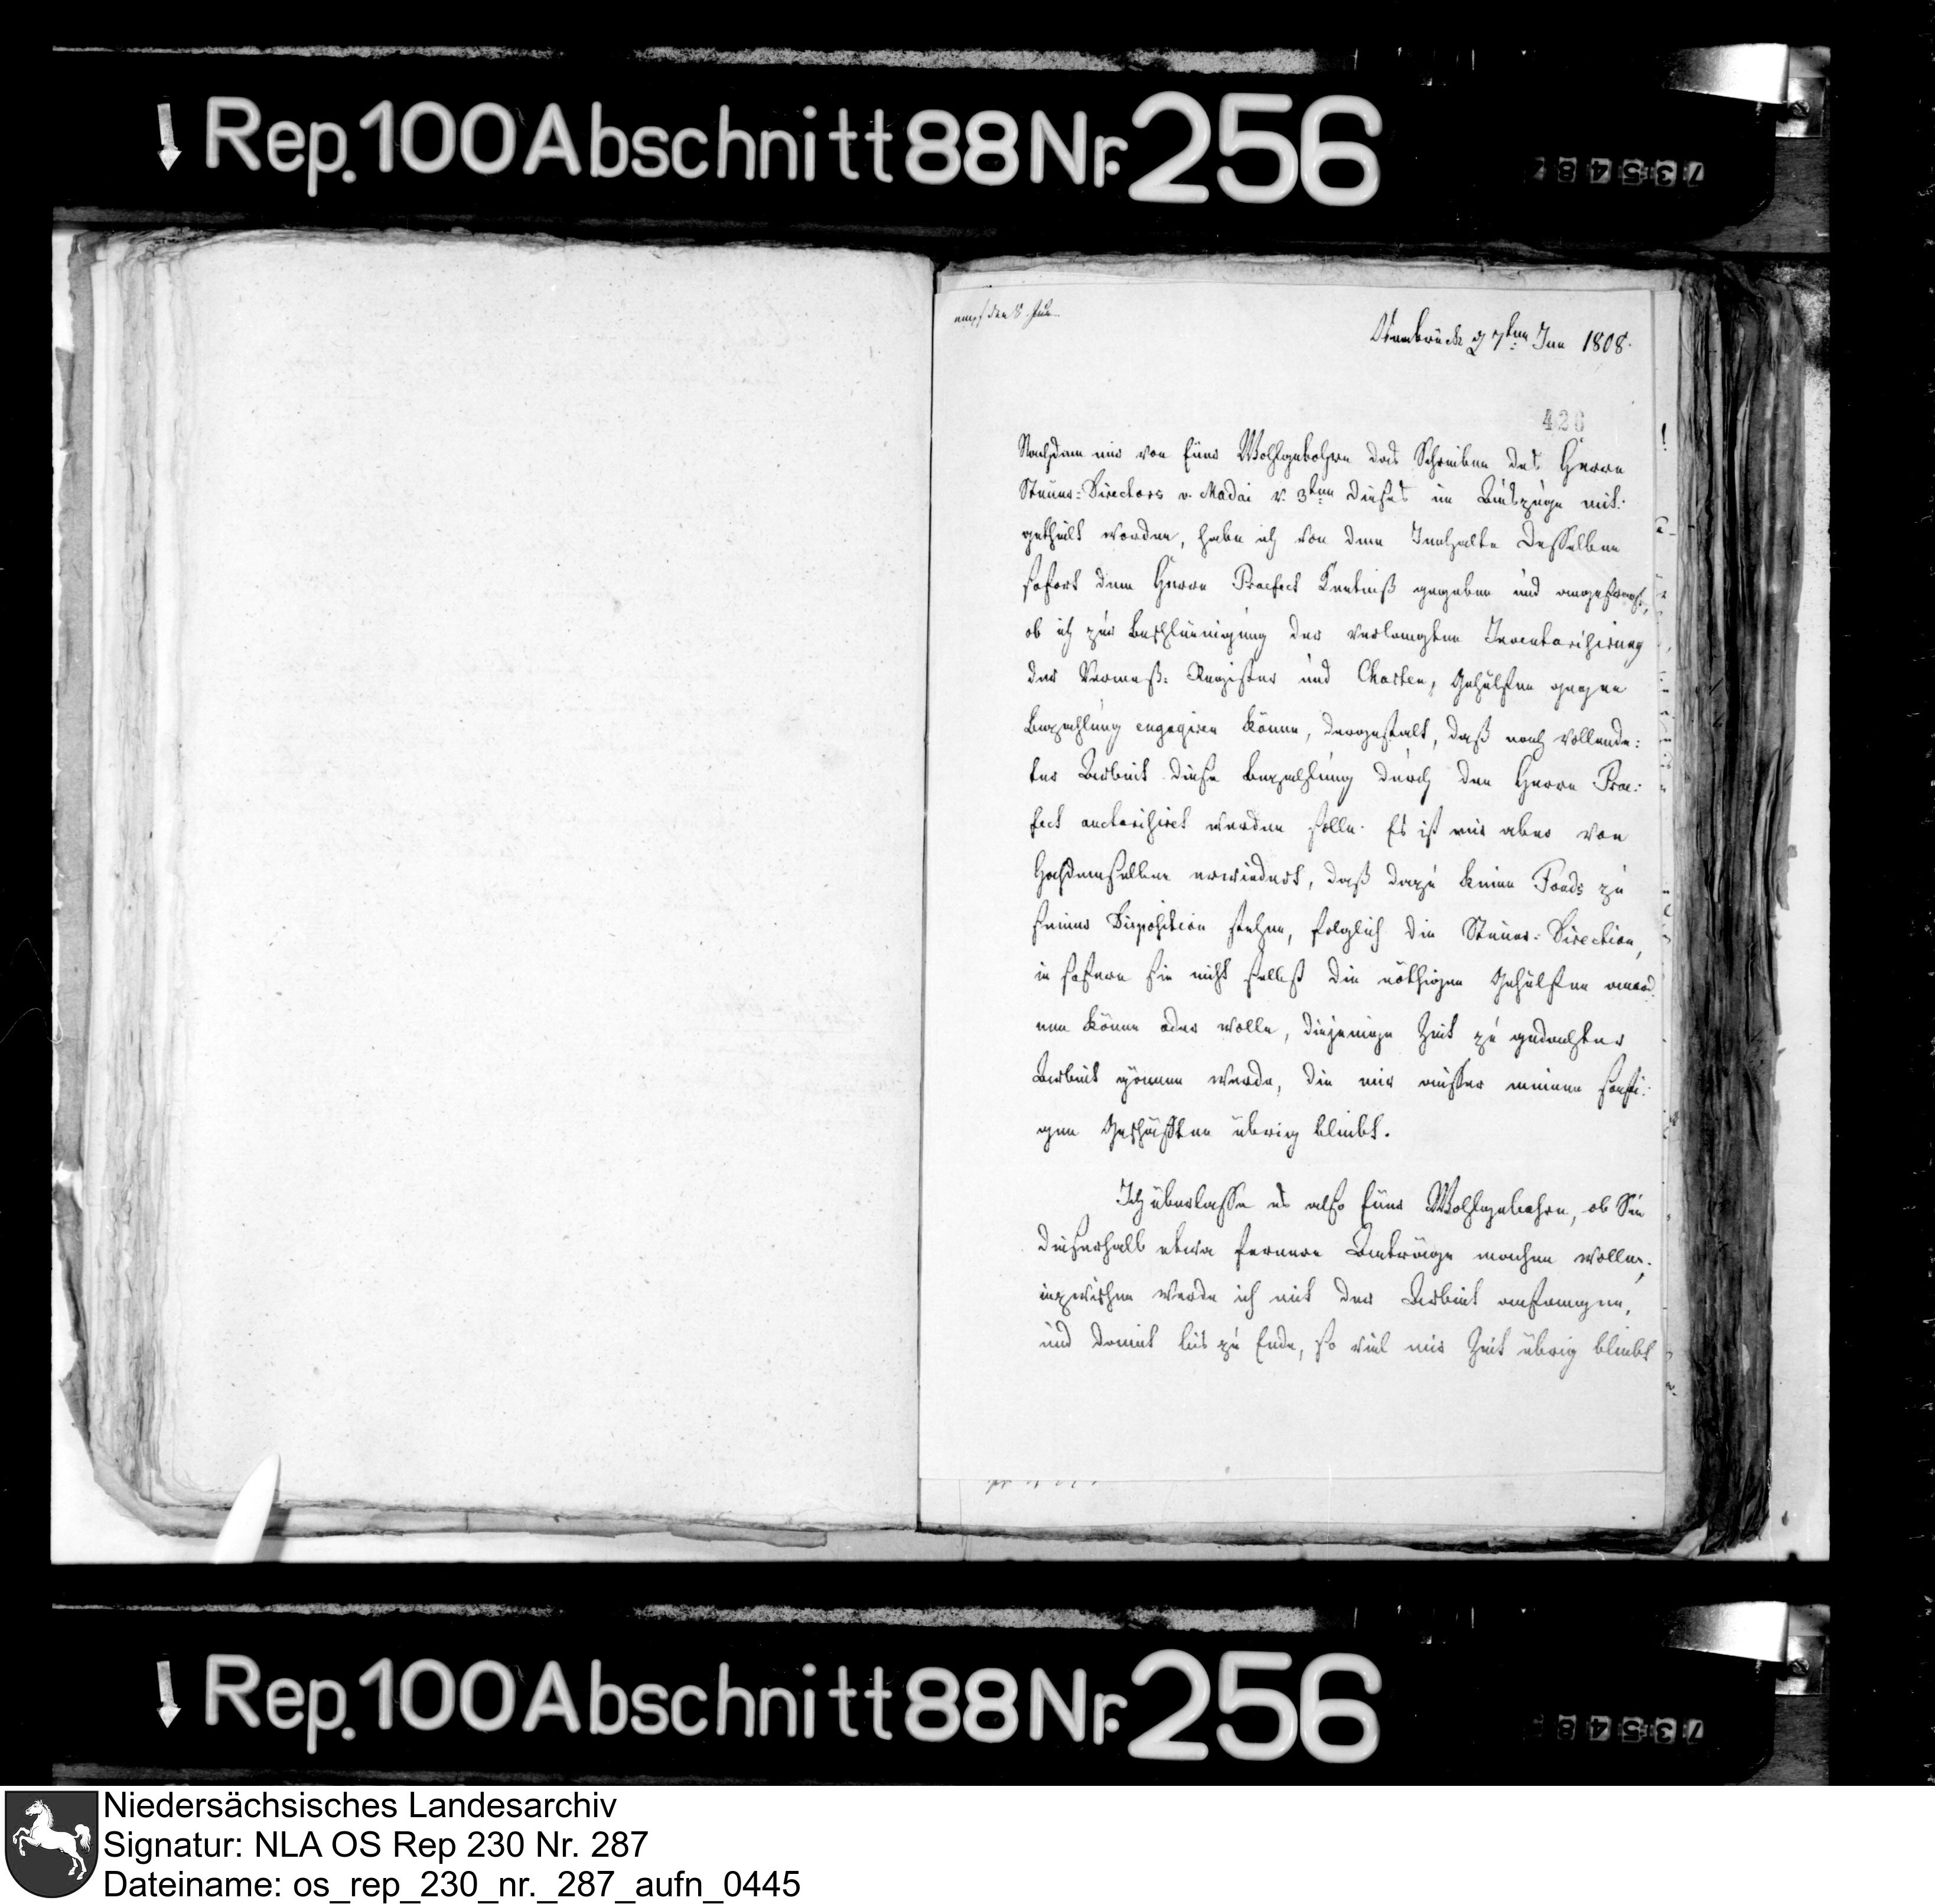 Rep. 100 Abschnitt 88 Nr. 256
73548
empf den 8. Jun.
Osnabrück d 7ten Jun 1808.
420
Nachdem mir von Euer Wohlgebohren das Schreiben des Herrn
Steuer-Directors v. Madai v. 3ten dieses im Auszuge mit:
getheilt worden, habe ich von dem Innhalte desselben
sofort dem Herrn Praefect Kentniß gegeben und angefragt,
ob ich zur Beschleunigung der verlangten Inventarisirung
der Vermeß: Register und Charten, Gehülfen gegen
Bezahlung engagiren könne, dergestalt, daß nach vollende:
ter Arbeit diese Bezahlung durch den Herrn Prae:
fect auctorisiret werden solle. Es ist mir aber von
Hochdemselben erwiedert, daß dazu keine Fonds zu
seiner Disposition stehen, folglich die Steuer-Direction,
in sofern sie nicht selbst die nöthigen Gehülfen
nen könne oder wolle, diejenige Zeit zu gedachter
Arbeit gönnen werde, die mir ausser meinen sonsti:
gen Geschäften übrig bleibt.
Ich überlasse es also Euer Wohlgebohrn, ob Sie
dieserhalb etwa fernere Anträge machen wollen;
inzwischen werde ich mit der Arbeit anfangen,
und damit bis zu Ende, so viel mir Zeit übrig bleibt
Rep. 100 Abschnitt 88 Nr. 256
73548
Niedersächsisches Landesarchiv
Signatur: NLA OS Rep 230 Nr. 287
Dateiname: os_rep_230_nr._287_aufn_0445